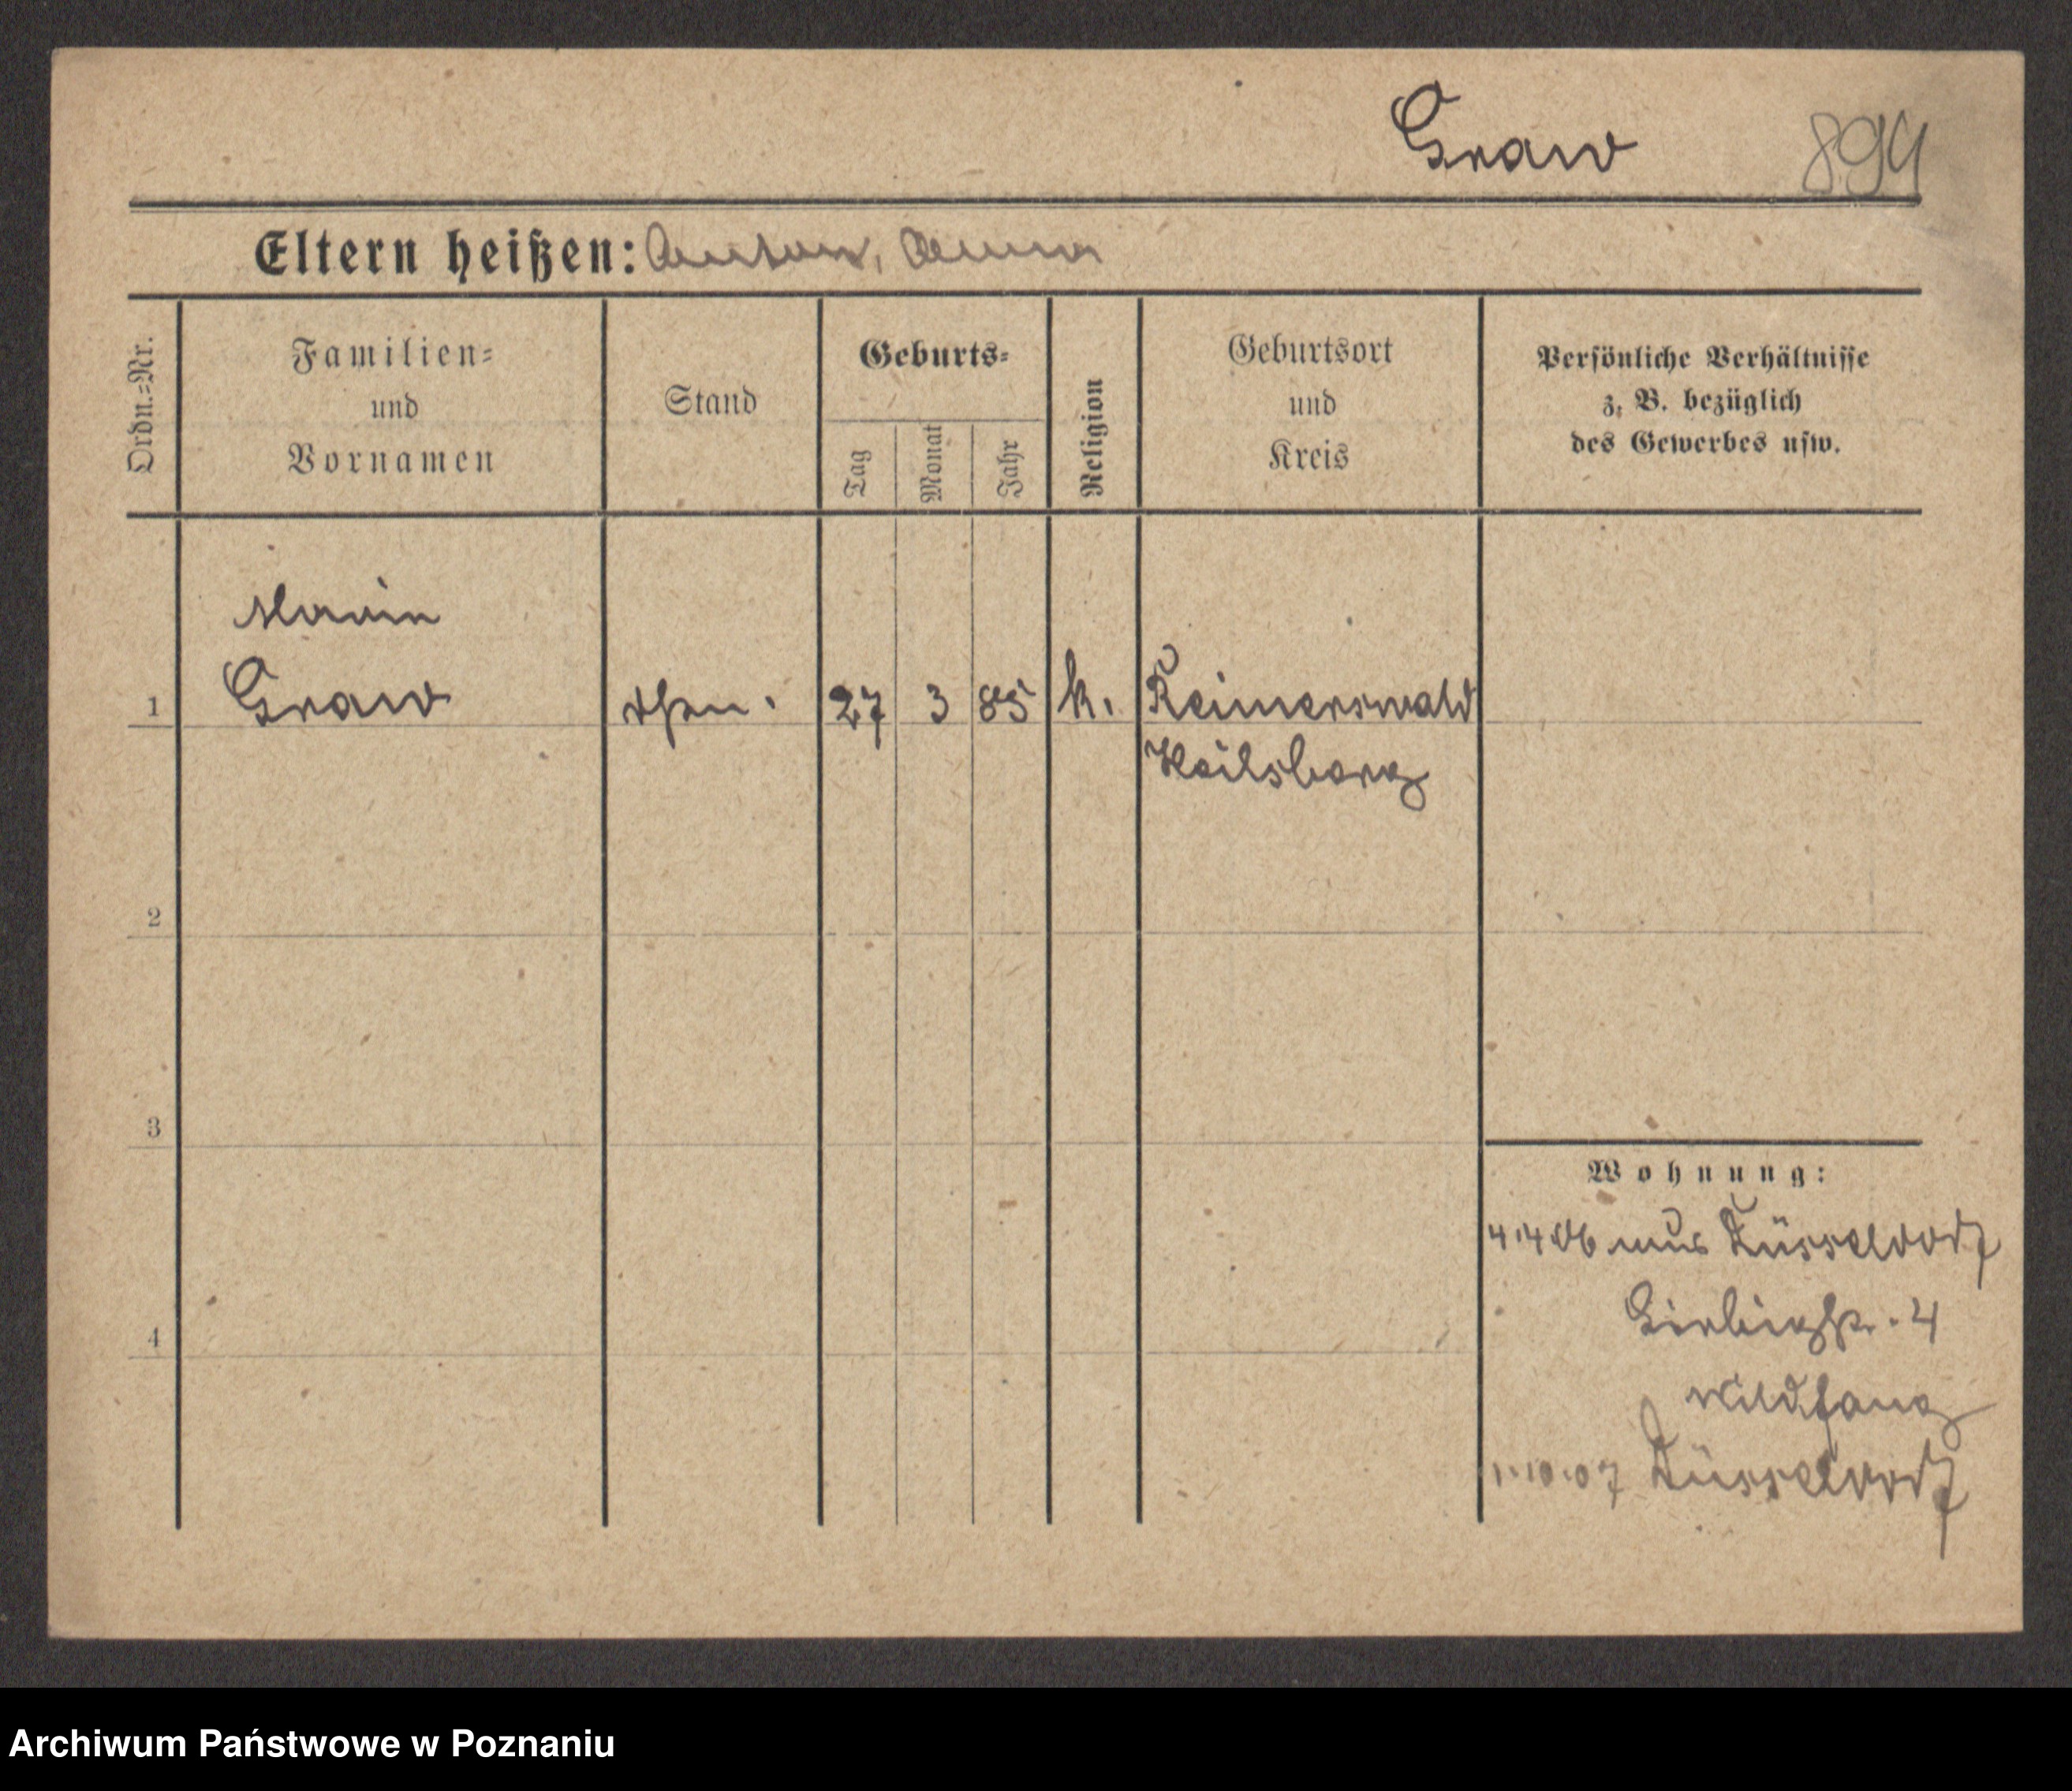 Graw 894
Eltern heißen: Anton, Anna
Ordn.=Nr.
Familien=
und
Vornamen
Stand
Geburts=
Tag
Monat
Jahr
Religion
Geburtsort
und
Kreis
Persönliche Verhältnisse
z. B. bezüglich
des Gewerbes usw.
Maria
1 Graw 27 3 85 k. Reimerswald
Heilsberg
2
3
4
Wohnung:
4.4.06 aus Düsseldorf
4
Wildfang
1.10.07 Düsseldorf
Archiwum Państwowe w Poznaniu